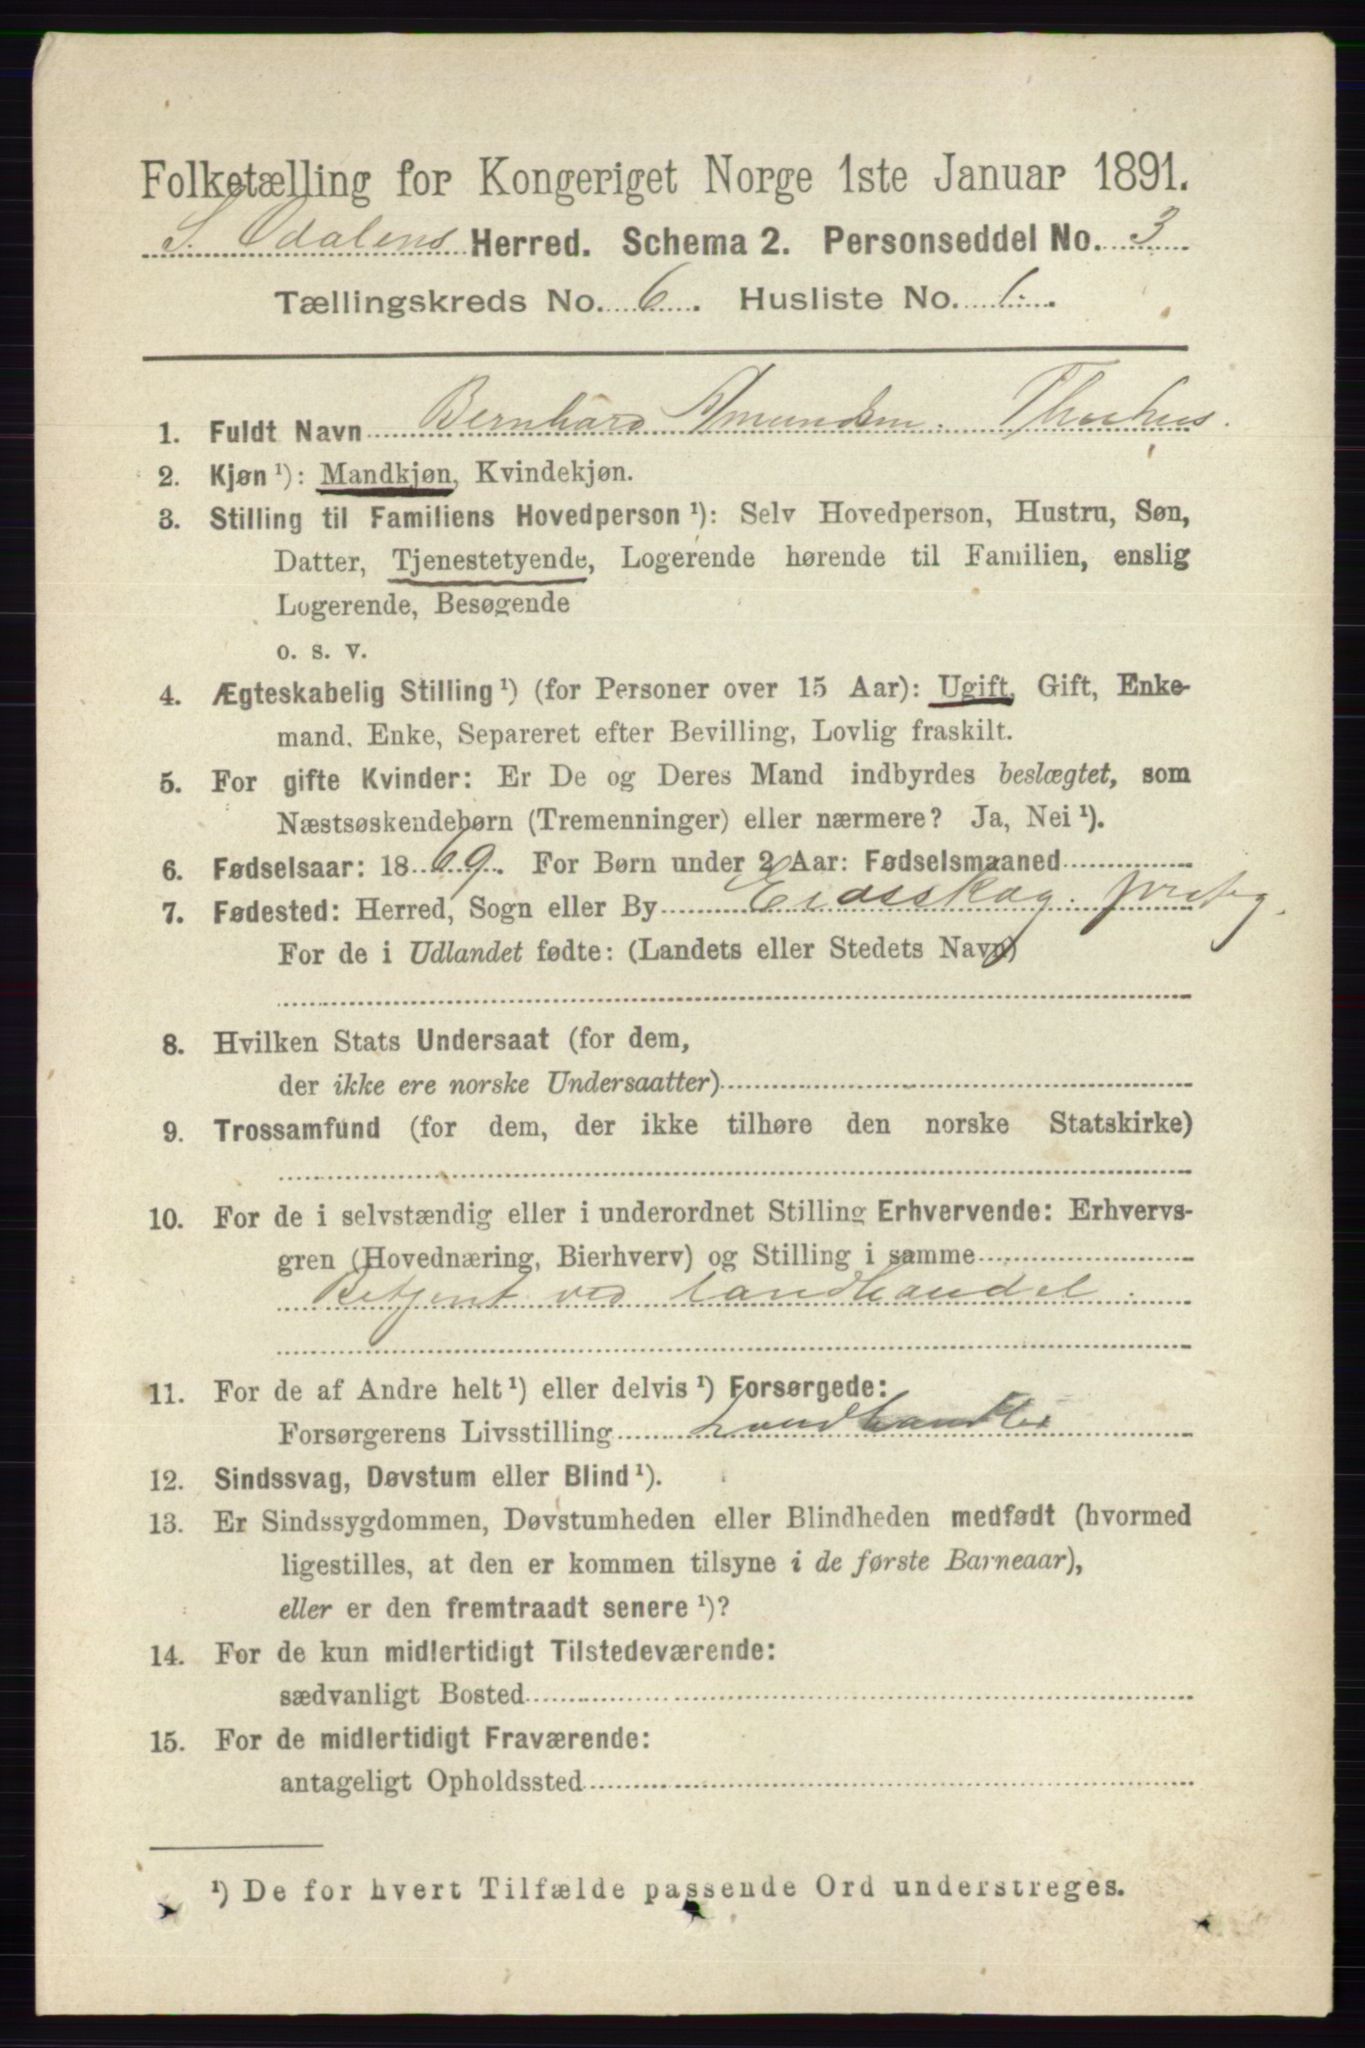 Folketælling for Kongeriget Norge 1ste Januar 1891.
S. Odalens Herred. Schema 2. Personseddel No. 3
Tællingskreds No. 6. Husliste No. 1.
1. Fuldt Navn Bernhard Amundsen Thorhus.
2. Kjøn ¹): Mandkjøn, Kvindekjøn.
3. Stilling til Familiens Hovedperson ¹): Selv Hovedperson, Hustru, Søn,
Datter, Tjenestetyende, Logerende hørende til Familien, enslig
Logerende, Besøgende
o. s. v.
4. Ægteskabelig Stilling ¹) (for Personer over 15 Aar): Ugift, Gift, Enke-
mand, Enke, Separeret efter Bevilling, Lovlig fraskilt.
5. For gifte Kvinder: Er De og Deres Mand indbyrdes beslægtet, som
Næstsøskendebørn (Tremenninger) eller nærmere? Ja, Nei ¹).
6. Fødselsaar: 1869. For Børn under 2 Aar: Fødselsmaaned
7. Fødested: Herred, Sogn eller By Eidsskog
For de i Udlandet fødte: (Landets eller Stedets Navn)
8. Hvilken Stats Undersaat (for dem,
der ikke ere norske Undersaatter)
9. Trossamfund (for dem, der ikke tilhøre den norske Statskirke)
10. For de i selvstændig eller i underordnet Stilling Erhvervende: Erhvervs-
gren (Hovednæring, Bierhverv) og Stilling i samme
Betjent ved Landhandel.
11. For de af Andre helt ¹) eller delvis ¹) Forsørgede:
Forsørgerens Livsstilling Landhandler
12. Sindssvag, Døvstum eller Blind ¹).
13. Er Sindssygdommen, Døvstumheden eller Blindheden medfødt (hvormed
ligestilles, at den er kommen tilsyne i de første Barneaar),
eller er den fremtraadt senere ¹)?
14. For de kun midlertidigt Tilstedeværende:
sædvanligt Bosted
15. For de midlertidigt Fraværende:
antageligt Opholdssted
¹) De for hvert Tilfælde passende Ord understreges.